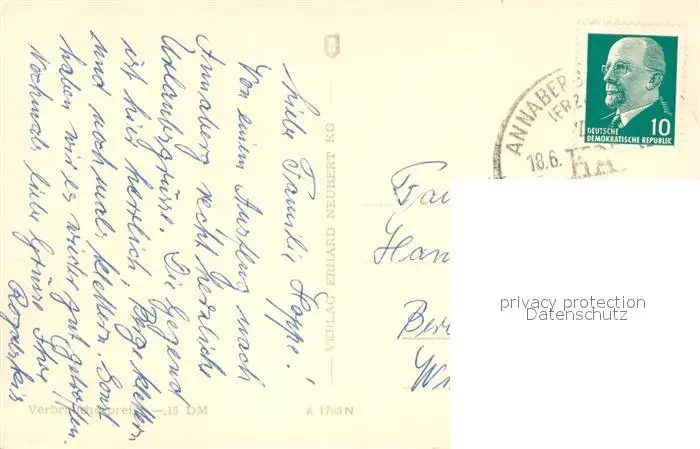 Liebe Familie Hoppe!
Von einem Ausflug nach
Annaberg recht herzliche
Urlaubsgrüsse. Die Gegend
ist hier herrlich, Berge klettern
und nochmals klettern. Sonst
haben wir es wieder gut getroffen.
Nochmals liebe Grüsse Ihre
VERLAG ERHARD NEUBERT KG
Verbraucherpreis —,15 DM
A 1793 N
ANNABERG
(ERZ
18.6.
DEUTSCHE
DEMOKRATISCHE REPUBLIK
10
Fam
Han
Ber
privacy protection
Datenschutz